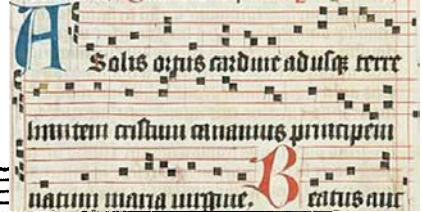 A Solis ortus cardine adusqz terre
limitem cristum canamus principem
natum maria virgine. Beatus auc